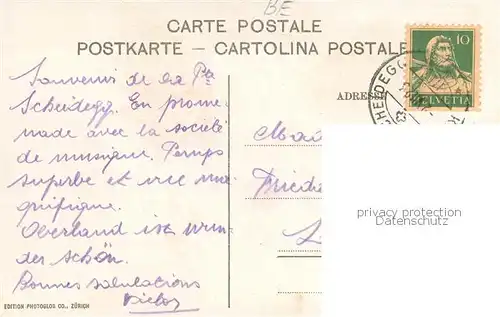 BE
CARTE POSTALE
POSTKARTE – CARTOLINA POSTALE
10
HELVETIA
SCHEIDEGG
ADRESSE
Souvenir de la Pte
Scheidegg. En prome-
nade avec la société
de musique. Temps
superbe et vue ma-
gnifique.
Oberland ist wun-
der schön.
Bonnes salutations
Friede
privacy protection
Datenschutz
EDITION PHOTOGLOB CO., ZÜRICH